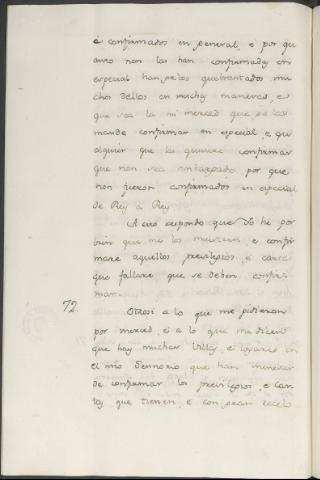 é confirmados en general, é por qu
anto non las han confirmadas en
especial hanselos quebrantados mu
chos dellos en muchas maneras, e
que sea la mi merced que se las
mande confirmar en especial, e qu
alquier que la quisiere confirmar
que non sea embargado por que
non fueron confirmados en especial
de Rey à Rey
A esto respondo que Yo he por
bien que me los muestren, e confir
mare aquellos previlegios, e cartas
que fallare que se deben confir
mar.
72. Otrosi a lo que me pidieron
por merced, é a lo que me dicen
que hay muchas Villas, é logares en
el mio Sennorio que han menester
de confirmar los previlegios, e car
tas que tienen, e con gran recelo